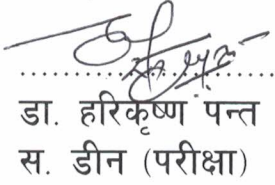 डा. हरिकृष्ण पन्त
स. डीन (परीक्षा)